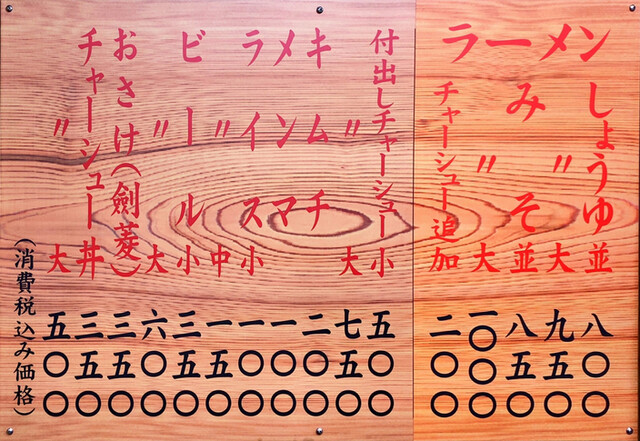 ラーメン
しょうゆ並 八〇〇
〃大 九五〇
みそ並 八五〇
〃大 一〇〇〇
チャーシュー追加 二〇〇
付出しチャーシュー小 五〇〇
〃大 七五〇
キムチ 二〇〇
メンマ 一〇〇
ライス小 一〇〇
〃中 一五〇
ビール小 三五〇
〃大 六〇〇
おさけ(劍菱) 三五〇
チャーシュー丼 三五〇
〃大 五〇〇
(消費税込み価格)